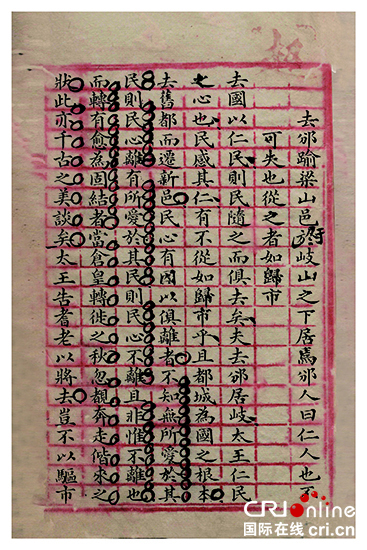 去邠踰梁山邑於岐山之下居焉邠人曰仁人也
可失也從之者如歸市
去國以仁民則民隨之而俱去矣夫去邠居岐太王仁民
之心也民感其仁有不從如歸市乎且都城為國之根本
去舊都而遷新邑民心有因以俱離者不知無所愛於其
民則民心離有所愛於其民則民心不離且非惟不離也
而轉有愈為固結者當倉皇轉徙之秋忽覩奔走偕來之
狀此亦千古之美談矣太王告耆老以將去豈不以驅市
CRI Online
国际在线 cri.cn